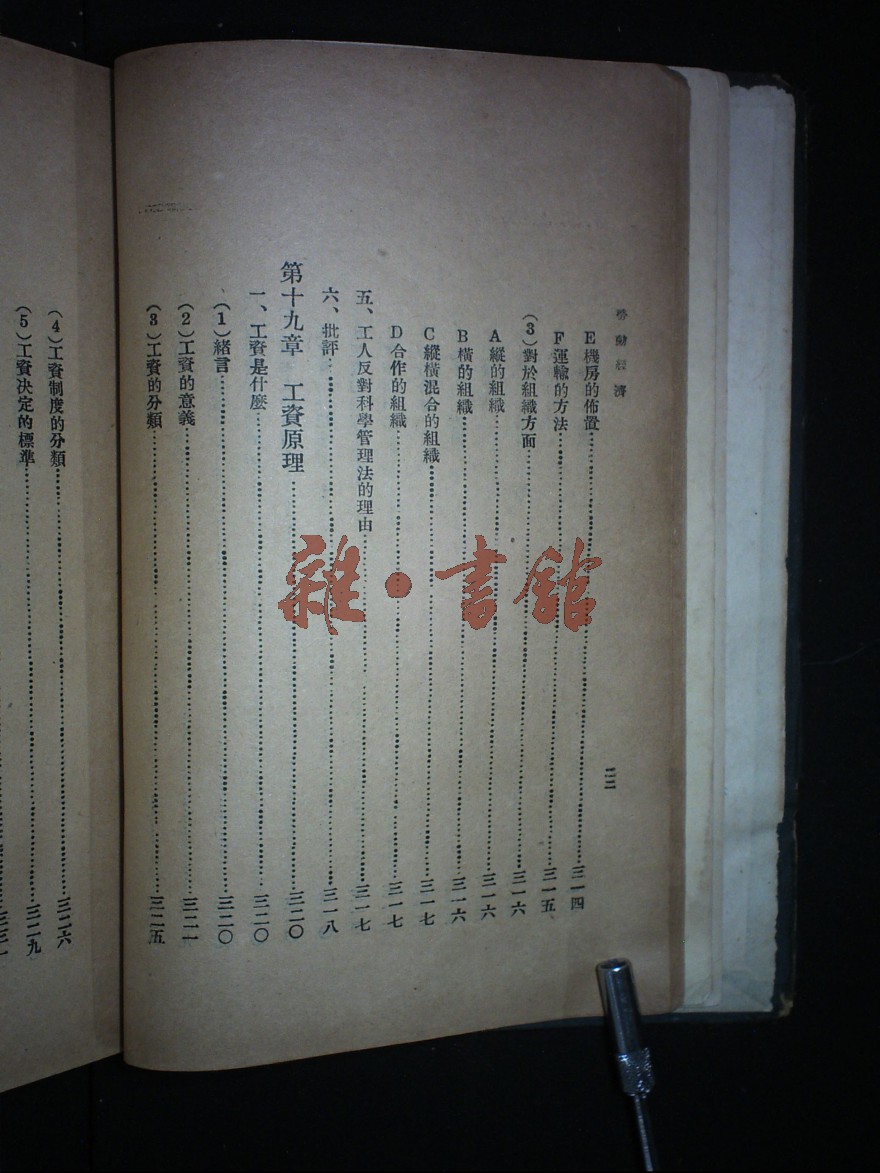 勞動經濟
二二
E 機房的佈置……三一四
F 運輸的方法……三一五
(3)對於組織方面……三一六
A 縱的組織……三一六
B 橫的組織……三一六
C 縱橫混合的組織……三一七
D 合作的組織……三一七
五、工人反對科學管理法的理由……三一七
六、批評……三一八
第十九章 工資原理……三二〇
一、工資是什麼……三二〇
(1)緒言……三二〇
(2)工資的意義……三二一
(3)工資的分類……三二五
(4)工資制度的分類……三二六
(5)工資決定的標準……三二九
雜·書館